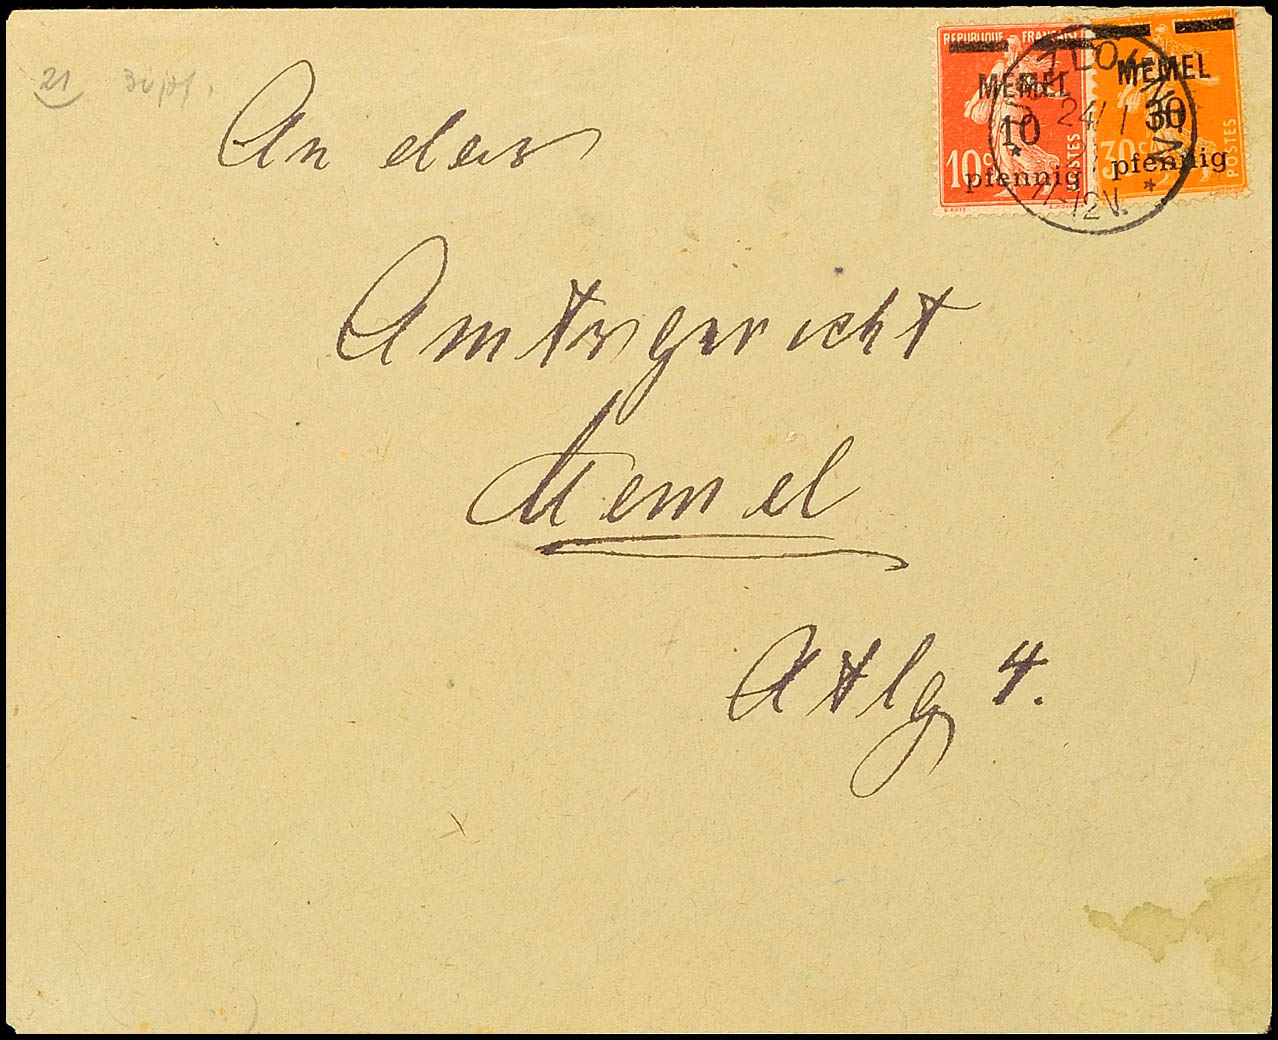 21
REPUBLIQUE FRANÇAISE
MEMEL MEMEL
24/1
10 30
10c POSTES 30c POSTES
pfennig pfennig
11-12V.
An das
Amtsgericht
Memel
Atlg 4.